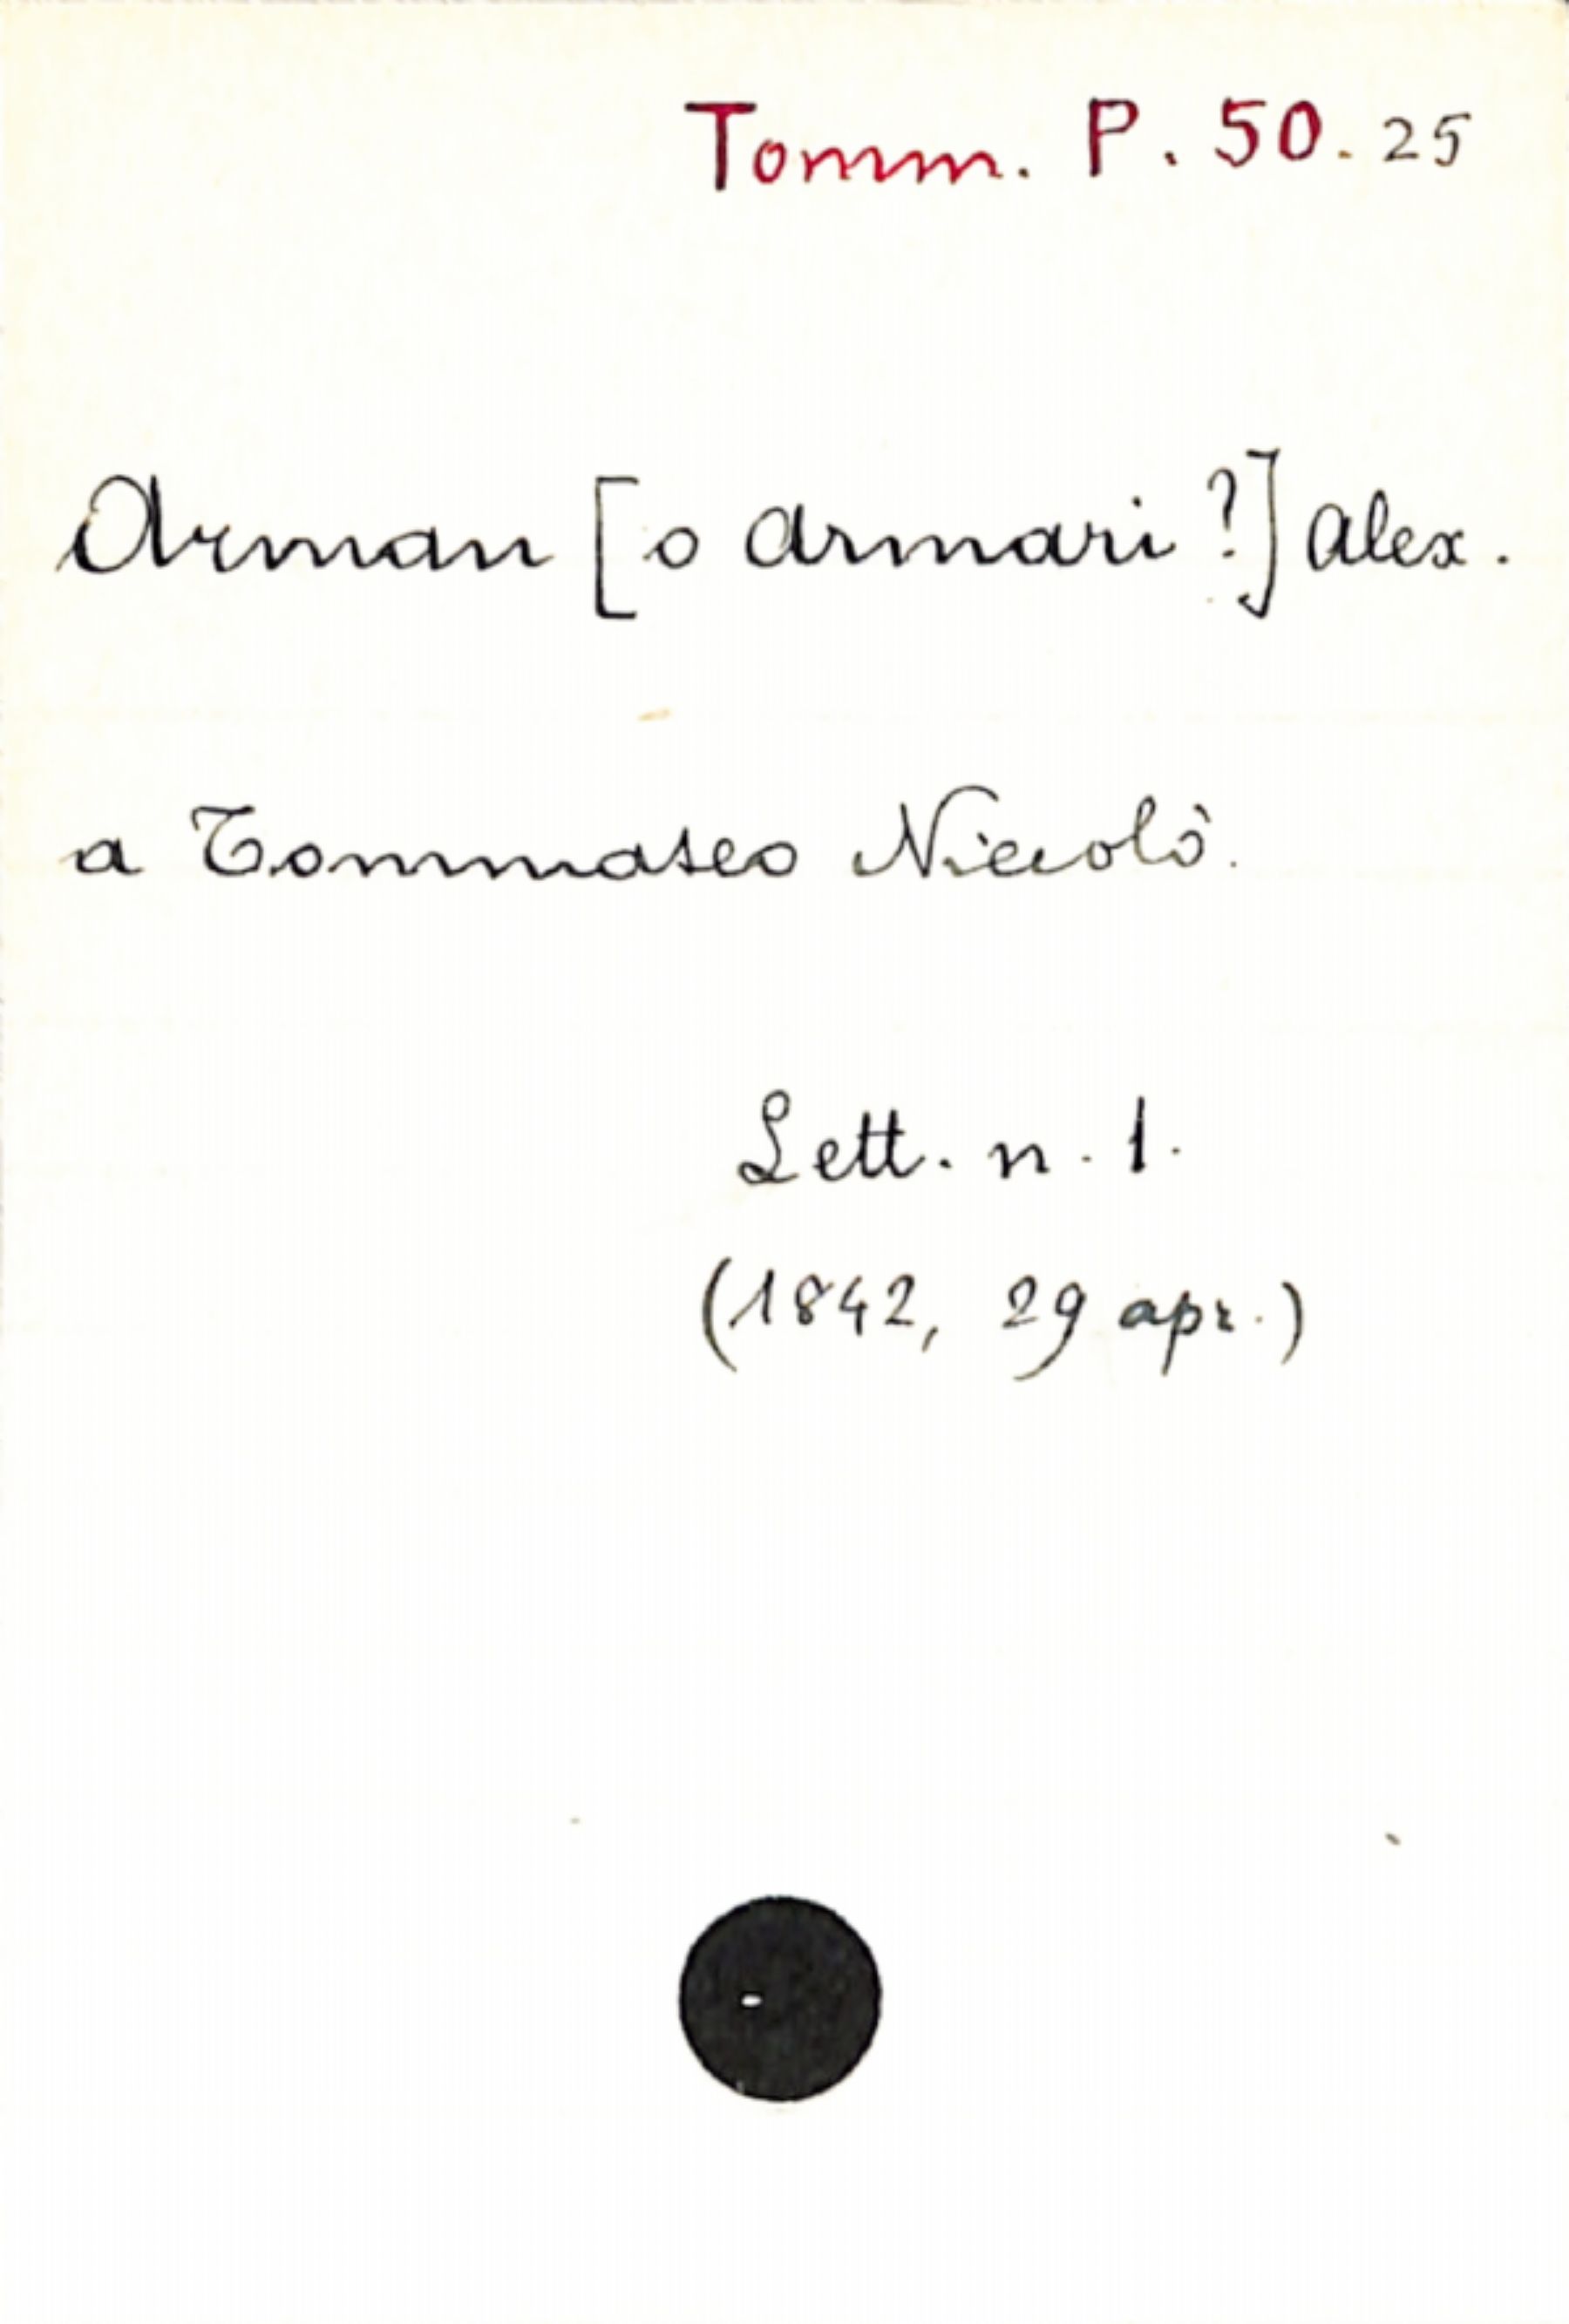 Tomm. P. 50. 25
Arman [o Armari ?] Alex.
a Tommaseo Niccolò.
Lett. n. 1.
(1842, 29 apr.)